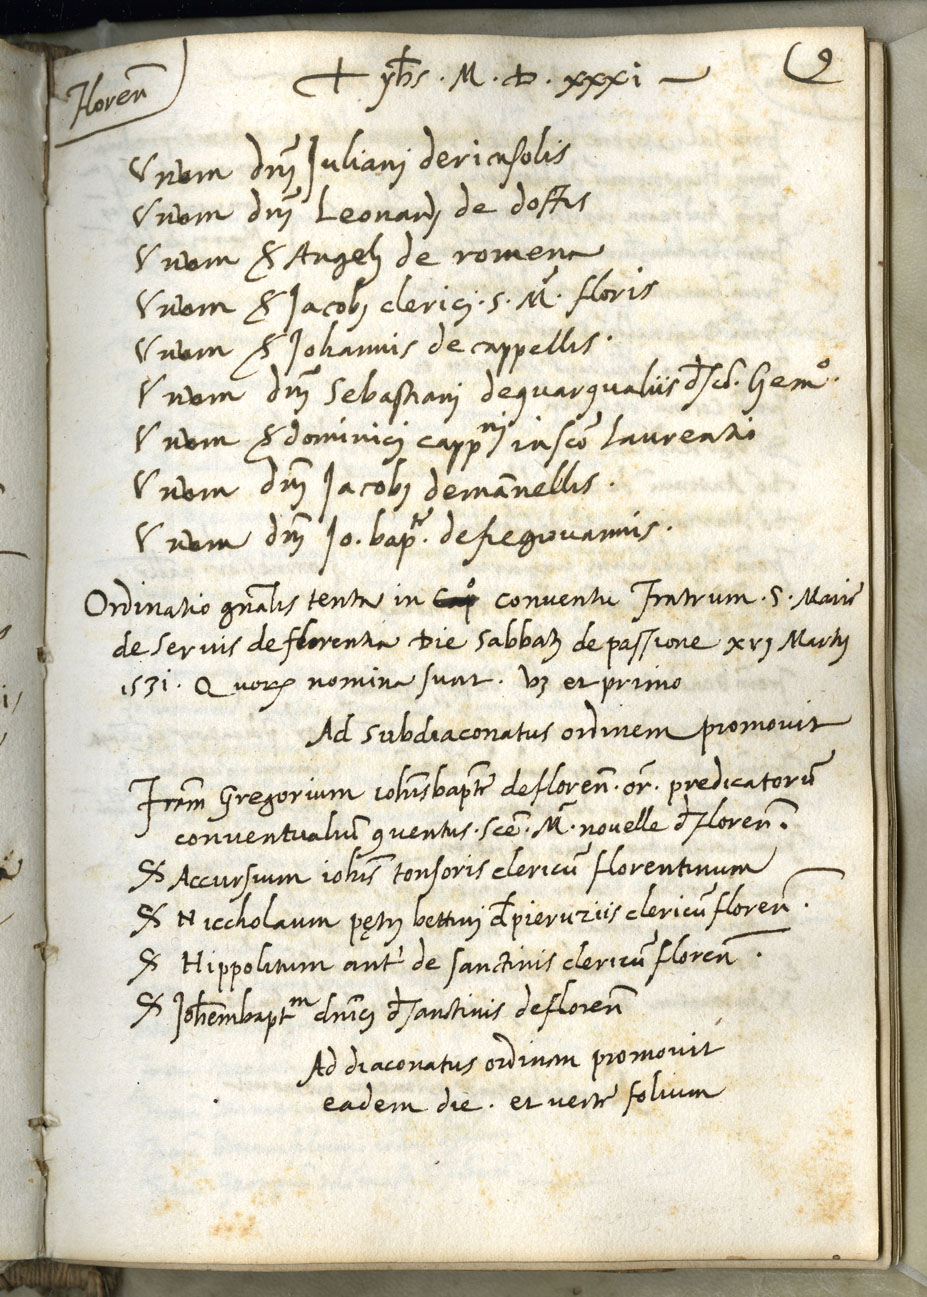 Floren̄
9
+ yħs · M · D · xxxi
Vnom dn̄j Juliani dericasolis
Vnom dn̄j Leonardj de doffis
Vnom & Angelj de romena
Vnom & Jacobj clericj · S · M̄ · floris
Vnom & Johannis de cappellis ·
Vnom dn̄j Sebastiani dequarqualiis
Vnom & dominicj cappⁿʲ in scō Laurentio
Vnom dn̄j Jacobj demān̄ellis ·
Vnom dn̄j Jo. bapᵗᵉ · defiegiovannis ·
Ordinatio gn̄alis tenta in conventu Fratrum · S · Marie
de Servis de florentia Die Sabbatj de passione xxv Martij
1531 · Quorꝝ nomina sunt · vꝫ et primo
Ad Subdiaconatus ordinem promovit
Frām Gregorium iohīsbaptē defloren̄ · or̄ · predicatorū
conventualiū 9ventus · scē · M̄ · novelle đ Floren̄ ·
& Accursium iohīs tonsoris clericū florentinum
& Niccholaum pętri bettini đ pieruziis clericū floren̄ ·
& Hippolitum antⁱ de sanctinis clericū floren̄ ·
& Joħem̄baptᵐ dn̄icj đ sanctinis defloren̄
Ad diaconatus ordinem promovit
eadem die · et verte folium